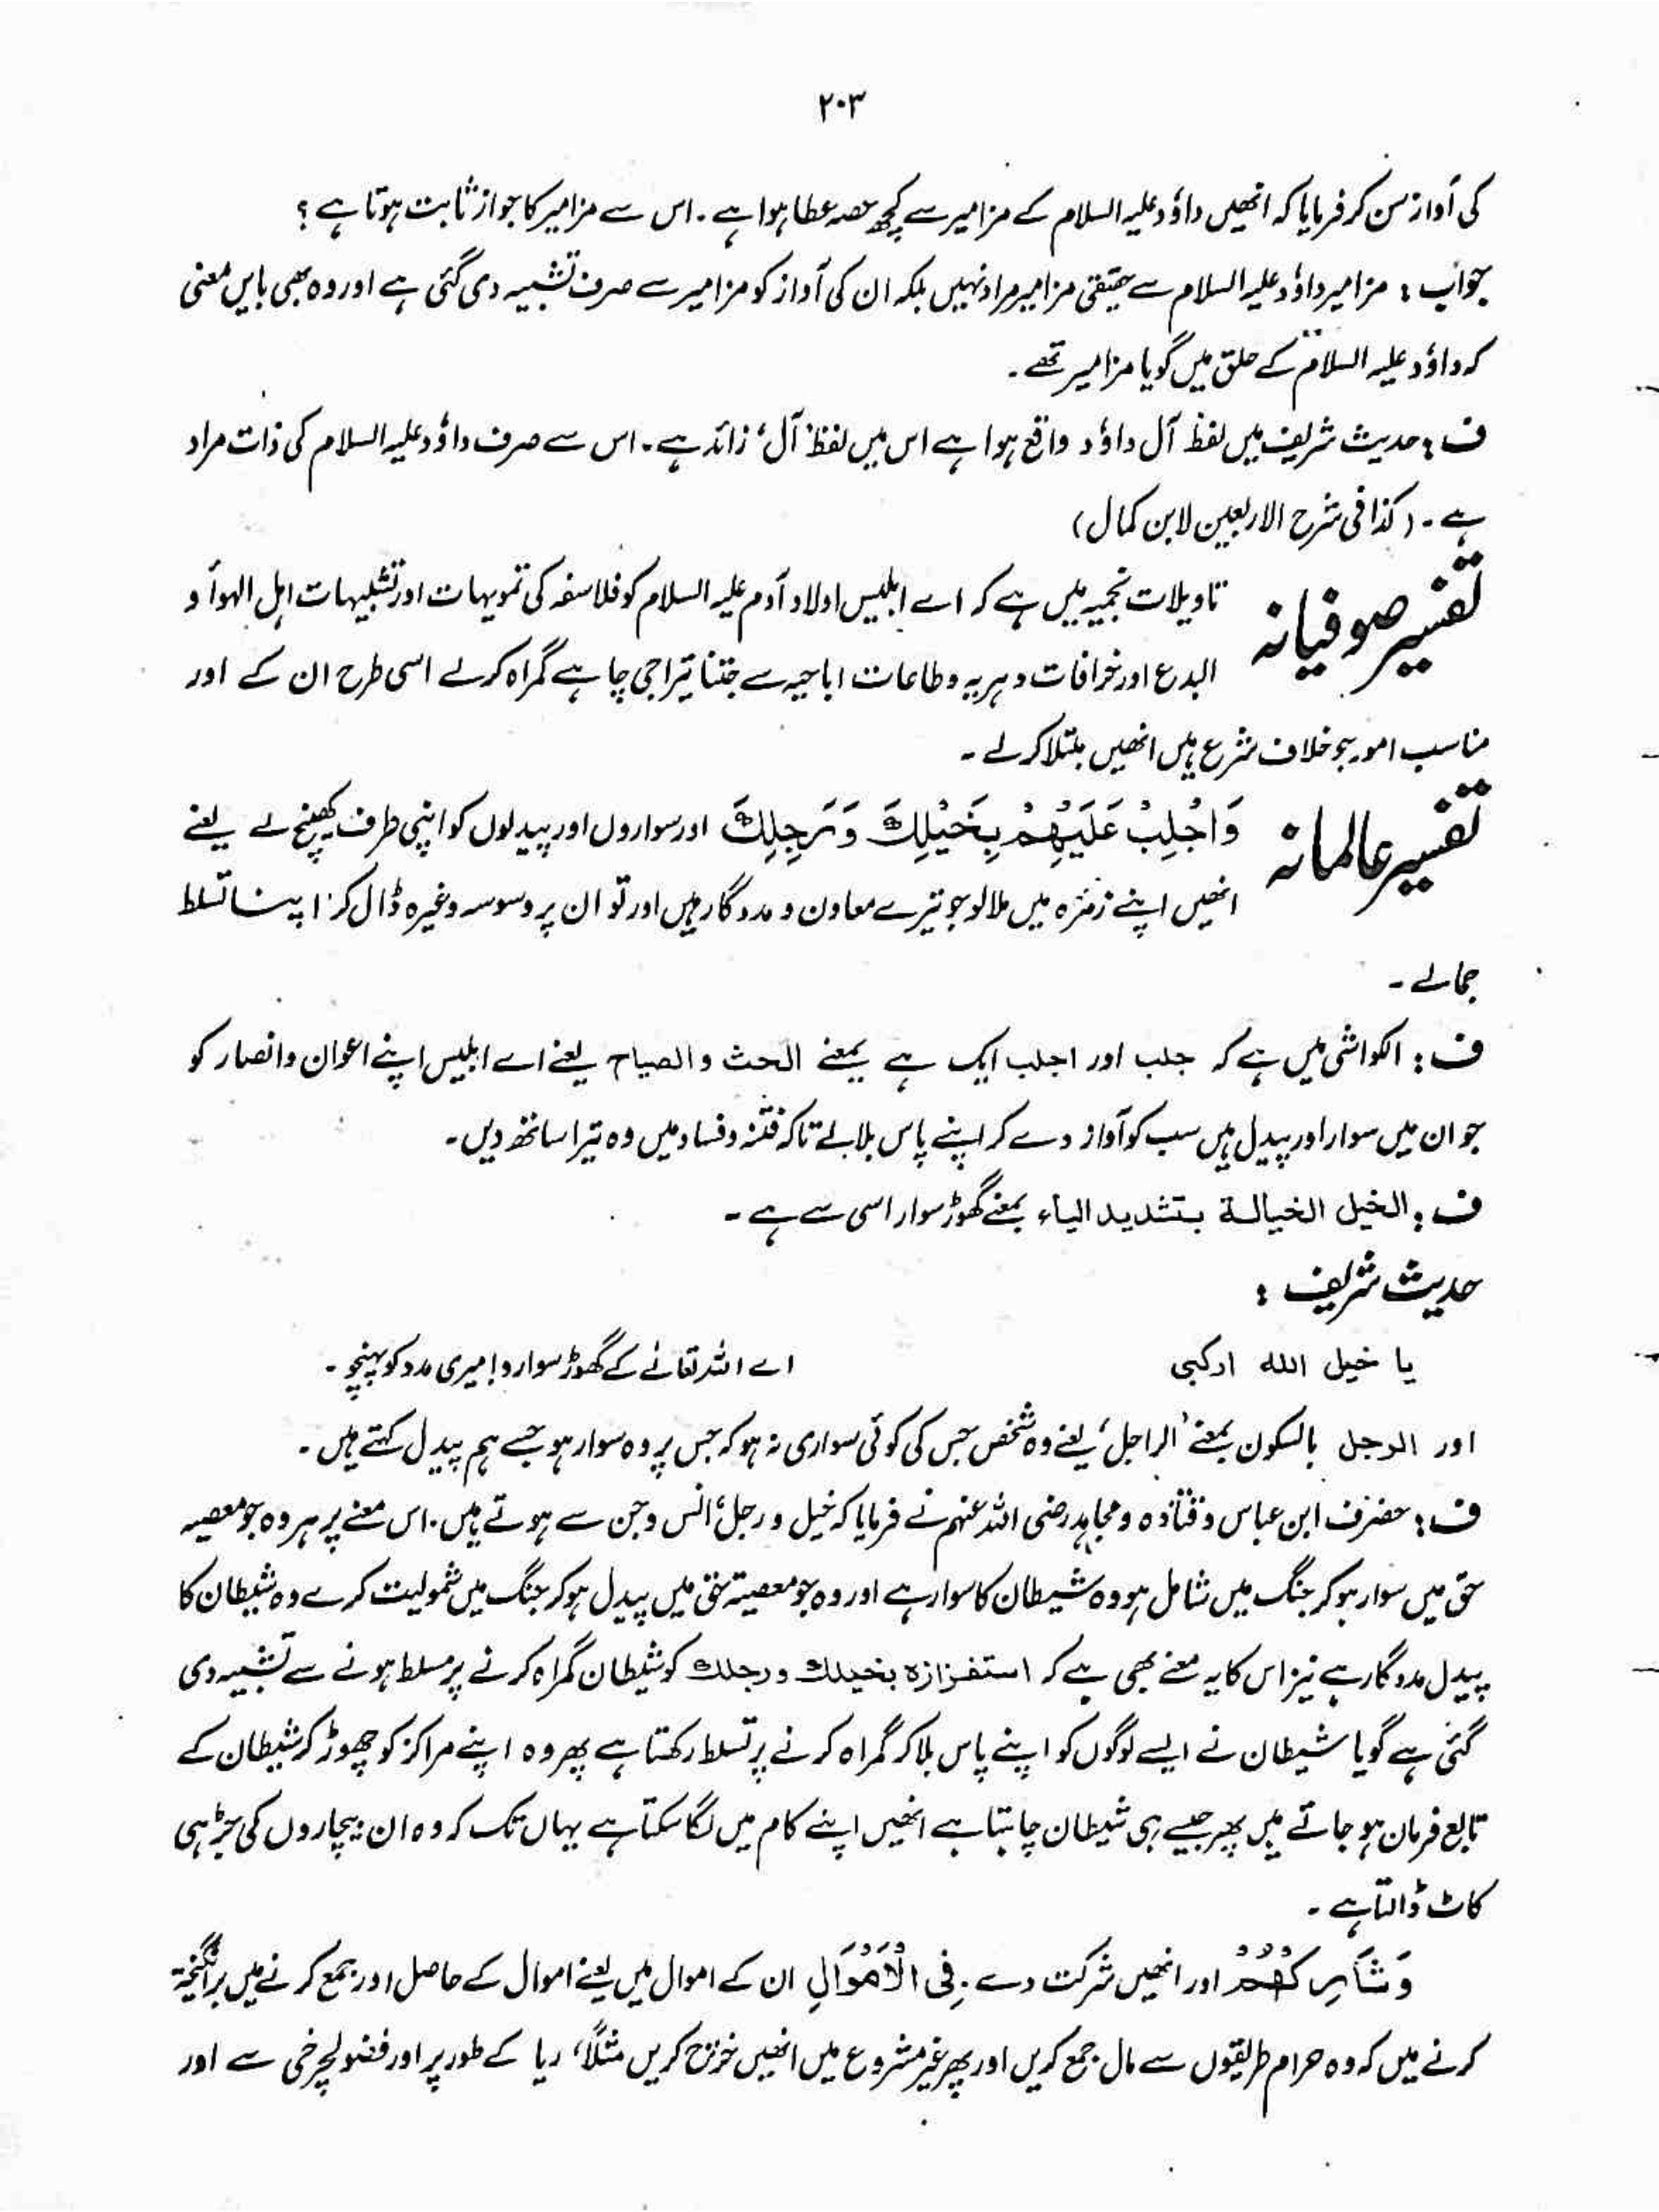 ۲۰۳
کی آواز سن کر فرمایا کہ انھیں داؤد علیہ السلام کے مزامیر سے کچھ حصہ عطا ہوا ہے ۔ اس سے مزامیر کا جواز ثابت ہوتا ہے ؟
جواب : مزامیر داؤد علیہ السلام سے حقیقی مزامیر مراد نہیں بلکہ ان کی آواز کو مزامیر سے صرف تشبیہ دی گئی ہے اور وہ بھی بایں معنی
کہ داؤد علیہ السلام کے حلق میں گویا مزامیر تھے ۔
ف : حدیث شریف میں لفظ آل داؤد واقع ہوا ہے اس میں لفظ 'آل' زائد ہے ۔ اس سے صرف داؤد علیہ السلام کی ذات مراد
ہے ۔ (کذا فی شرح الاربعین لابن کمال)
تفسیر صوفیانہ تاویلات نجمیہ میں ہے کہ اے ابلیس اولاد آدم علیہ السلام کو فلاسفہ کی تمویہات اور تشبیہات اہل الہوأ و
البدع اور خرافات دہریہ و طاعات اباحیہ سے جتنا تیرا جی چاہے گمراہ کرلے اسی طرح ان کے اور
مناسب امور جو خلاف شرع ہیں انھیں مبتلا کرلے ۔
تفسیر عالمانہ وَاَجْلِبْ عَلَيْهِمْ بِخَيْلِكَ وَرَجِلِكَ اور سواروں اور پیدلوں کو اپنی طرف کھینچ لے یعنے
انھیں اپنے زمرہ میں ملا لو جو تیرے معاون و مددگار ہیں اور تو ان پر وسوسہ وغیرہ ڈال کر اپنا تسلط
جمالے ۔
ف : الکواشی میں ہے کہ جلب اور اجلب ایک ہے بمعنے الحث والصیاح یعنے اے ابلیس اپنے اعوان و انصار کو
جو ان میں سوار اور پیدل ہیں سب کو آواز دے کر اپنے پاس بلالے تاکہ فتنہ و فساد میں وہ تیرا ساتھ دیں ۔
ف : الخیل الخیالة بتشدید الیاء بمعنے گھوڑ سوار اسی سے ہے ۔
حدیث شریف :
یا خیل اللہ ارکبی اے اللہ تعالٰے کے گھوڑ سوارو! میری مدد کو پہنچو ۔
اور الرجل بالسکون بمعنے 'الراجل' یعنے وہ شخص جس کی کوئی سواری نہ ہو کہ جس پر وہ سوار ہو جسے ہم پیدل کہتے ہیں ۔
ف : حضرت ابن عباس و قتادہ و مجاہد رضی اللہ عنہم نے فرمایا کہ خیل و رجل، انس و جن سے ہوتے ہیں ۔ اس معنے پر ہر وہ جو معصیہ
حق میں سوار ہو کر جنگ میں شامل ہو وہ شیطان کا سوار ہے اور وہ جو معصیۃ حق میں پیدل ہو کر جنگ میں شمولیت کرے وہ شیطان کا
پیدل مددگار ہے نیز اس کا یہ معنے بھی ہے کہ استفزازہ بخیلك ورجلك کو شیطان گمراہ کرنے پر مسلط ہونے سے تشبیہ دی
گئی ہے گویا شیطان نے ایسے لوگوں کو اپنے پاس بلا کر گمراہ کرنے پر تسلط رکھتا ہے پھر وہ اپنے مراکز کو چھوڑ کر شیطان کے
تابع فرمان ہو جاتے ہیں پھر جیسے ہی شیطان چاہتا ہے انھیں اپنے کام میں لگا سکتا ہے یہاں تک کہ وہ ان بیچاروں کی جڑ ہی
کاٹ ڈالتا ہے ۔
وَشَارِكْهُمْ اور انھیں شرکت دے ۔ فِی الْاَمْوَالِ ان کے اموال میں یعنے اموال کے حاصل اور جمع کرنے میں برانگیختہ
کرنے میں کہ وہ حرام طریقوں سے مال جمع کریں اور پھر غیر مشروع میں انھیں خرچ کریں مثلاً، ریا کے طور پر اور فضولخرچی سے اور